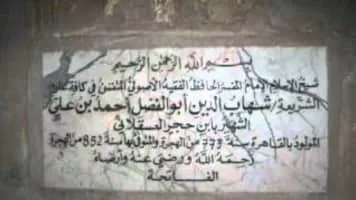 بسم الله الرحمن الرحيم
شيخ الإسلام الإمام المفسر الحافظ الفقيه الأصولي المتفنن في كافة علوم
الشريعة/ شهاب الدين أبو الفضل أحمد بن علي
الشهير بابن حجر العسقلاني
المولود بالقاهرة سنة 773 من الهجرة والمتوفى بها سنة 852 من الهجرة
رحمه الله ورضي عنه وأرضاه
الفاتحة